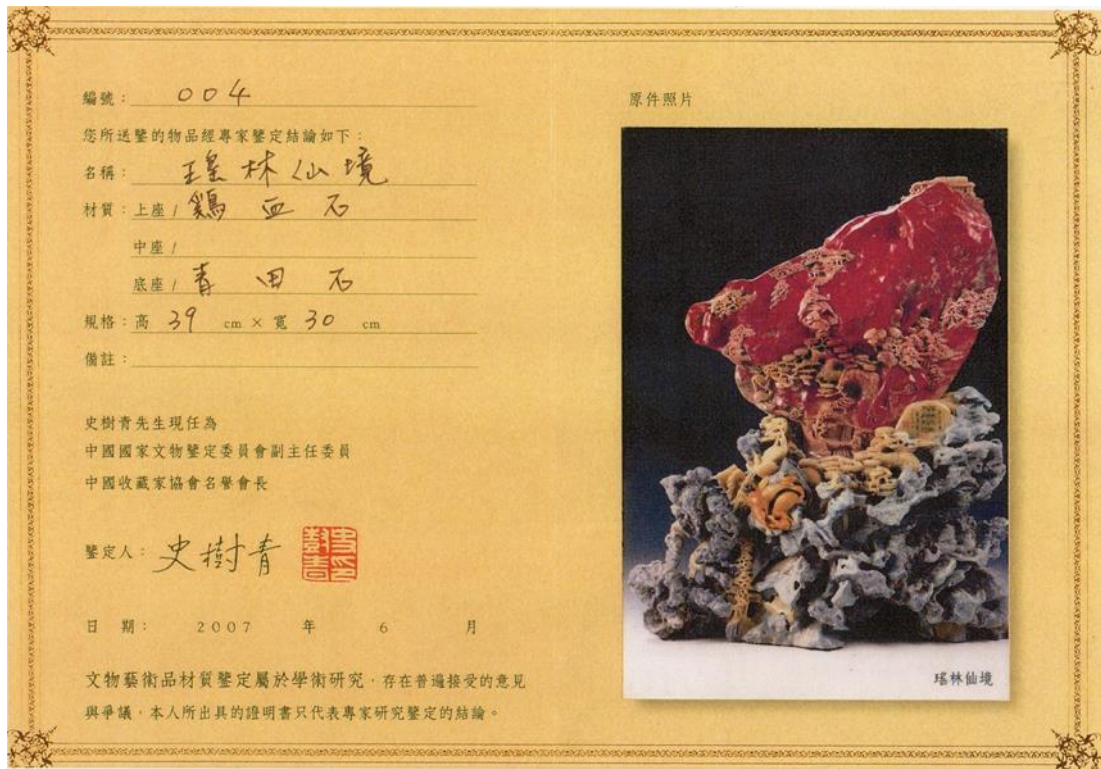 編號：004
您所送鑒的物品經專家鑒定結論如下：
名稱：瑝林仙境
材質：上座/鷄血石
中座/
底座/青田石
規格：高 39 cm × 寬 30 cm
備註：
史樹青先生現任為
中國國家文物鑒定委員會副主任委員
中國收藏家協會名譽會長
鑒定人：史樹青
史印樹青
日期： 2007 年 6 月
文物藝術品材質鑒定屬於學術研究，存在普遍接受的意見
與爭議，本人所出具的證明書只代表專家研究鑒定的結論。
原件照片
瑤林仙境